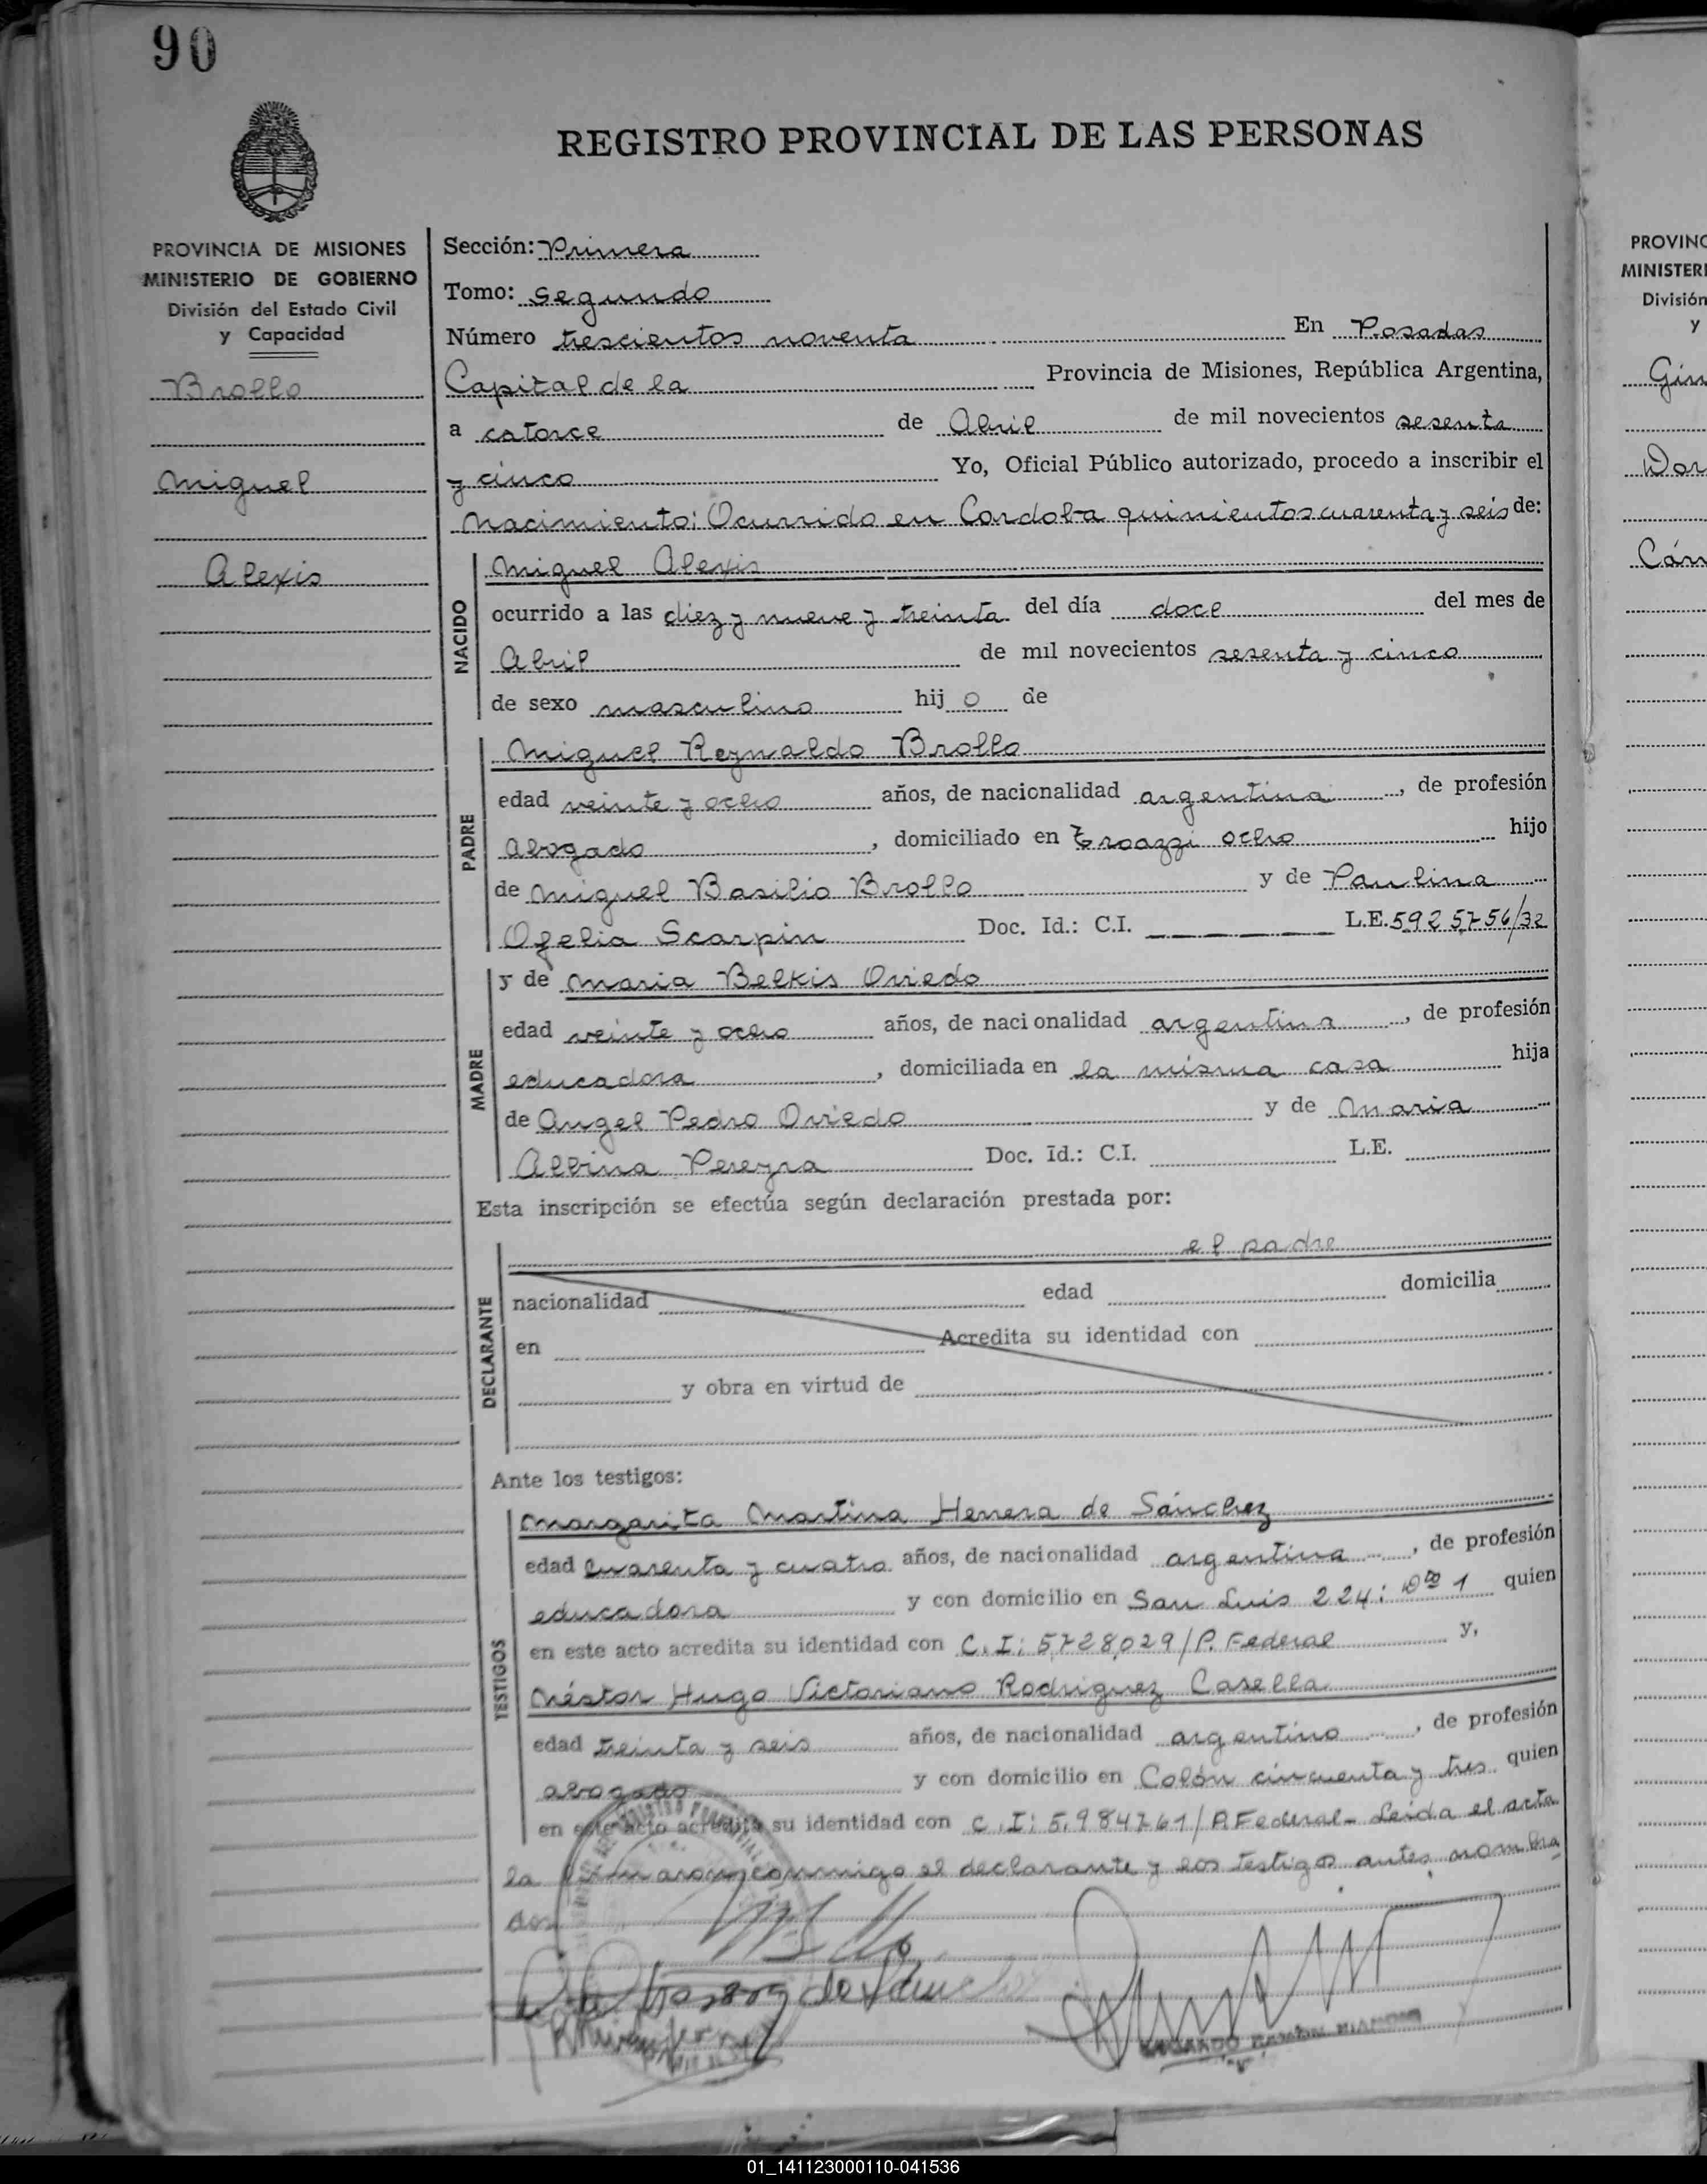 90
REGISTRO PROVINCIAL DE LAS PERSONAS
PROVINCIA DE MISIONES
MINISTERIO DE GOBIERNO
División del Estado Civil
y Capacidad
Brollo
Miguel
Alexis
Sección: Primera
Tomo: segundo
Número trescientos noventa En Posadas
Capital de la Provincia de Misiones, República Argentina,
a catorce de Abril de mil novecientos sesenta
y cinco Yo, Oficial Público autorizado, procedo a inscribir el
Nacimiento: Ocurrido en Cordoba quinientos cuarenta y seis de:
NACIDO
Miguel Alexis
ocurrido a las diez y nueve y treinta del día doce del mes de
Abril de mil novecientos sesenta y cinco
de sexo masculino hij o de
PADRE
Miguel Reynaldo Brollo
edad veinte y ocho años, de nacionalidad argentina, de profesión
abogado, domiciliado en Troazzi ocho hijo
de Miguel Basilio Brollo y de Paulina
Ofelia Scarpin Doc. Id.: C.I. L.E. 5925756/32
MADRE
y de Maria Belkis Oviedo
edad veinte y ocho años, de nacionalidad argentina, de profesión
educadora, domiciliada en la misma casa hija
de Angel Pedro Oviedo y de Maria
Albina Pereyra Doc. Id.: C.I. L.E.
Esta inscripción se efectúa según declaración prestada por:
DECLARANTE
el padre
nacionalidad edad domicilia
en Acredita su identidad con
y obra en virtud de
Ante los testigos:
TESTIGOS
Margarita Martina Herrera de Sánchez
edad cuarenta y cuatro años, de nacionalidad argentina, de profesión
educadora y con domicilio en San Luis 224: Dto 1 quien
en este acto acredita su identidad con C.I: 5,728,029/P. Federal y,
Néstor Hugo Victoriano Rodriguez Casella
edad treinta y seis años, de nacionalidad argentino, de profesión
abogado y con domicilio en Colón cincuenta y tres quien
en este acto acredita su identidad con C.I: 5,984761/P.Federal- Leida el acta
la firmaron conmigo el declarante y los testigos antes nombra
dos
PROVINC
MINISTERI
División
y
Gim
Dor
Cár
01_141123000110-041536